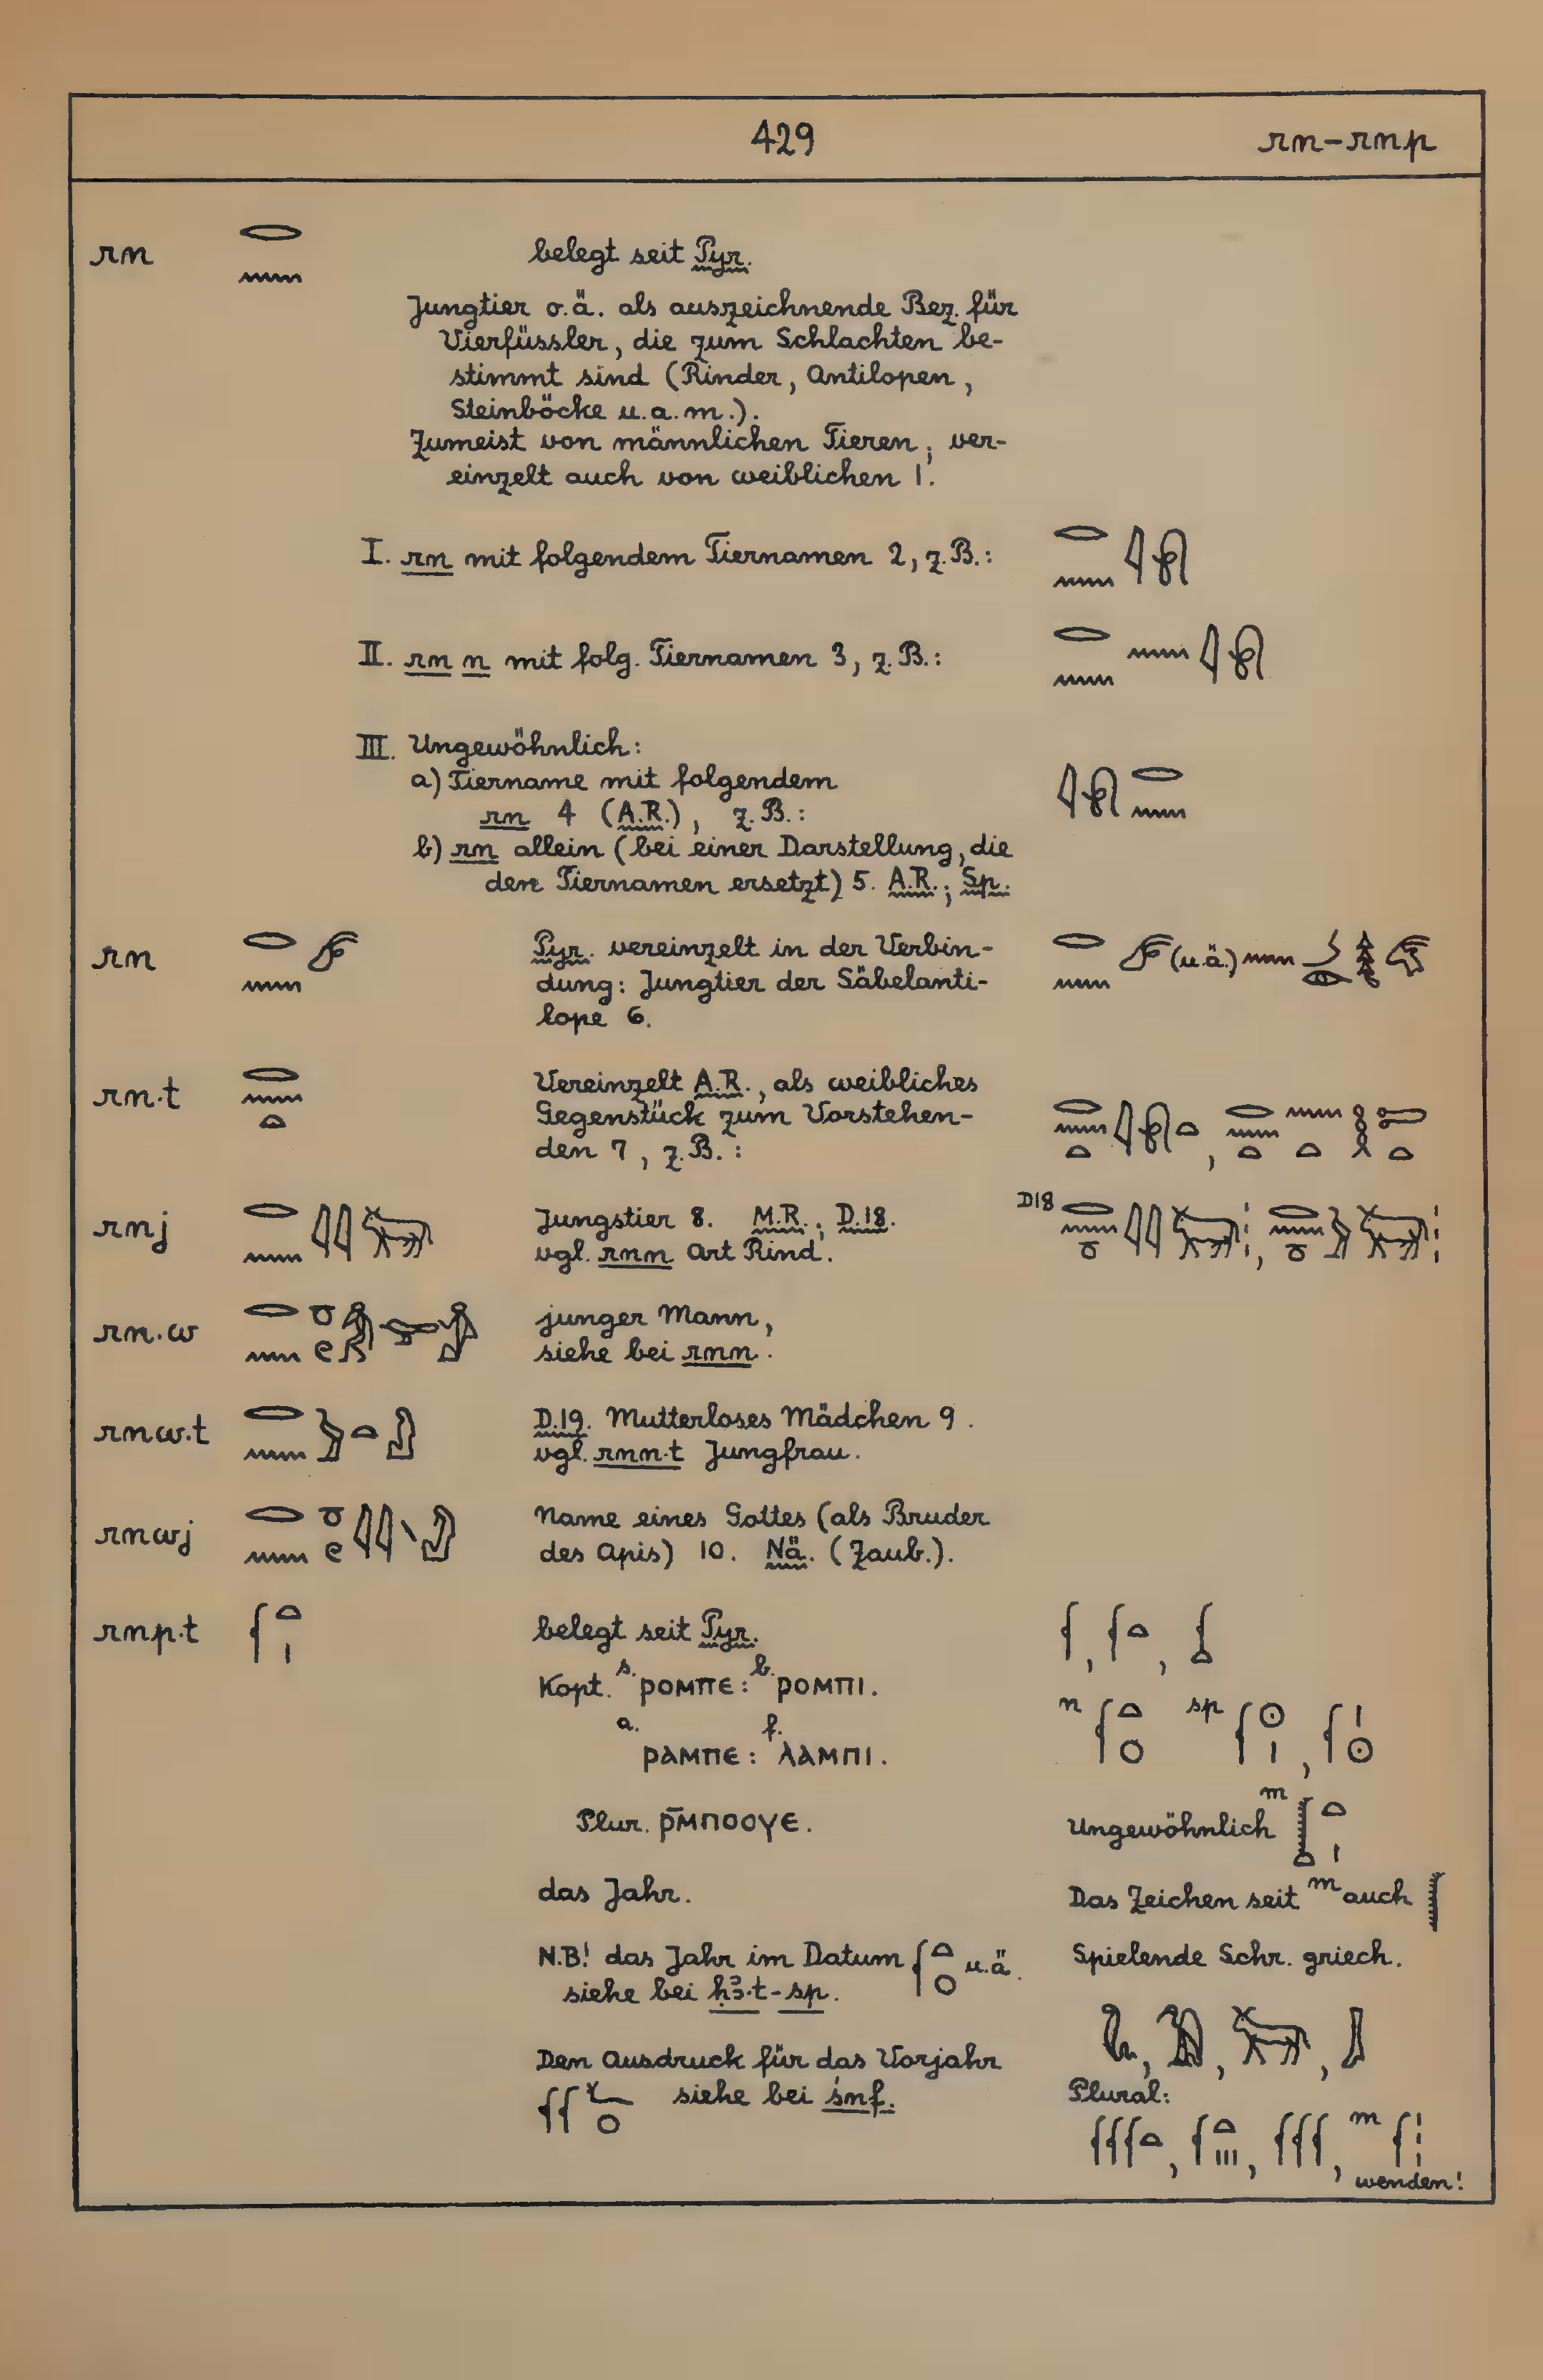 429
rn-rnp
rn
belegt seit Pyr.
Jungtier o.ä. als auszeichnende Bez. für
Vierfüssler, die zum Schlachten be-
stimmt sind (Rinder, Antilopen,
Steinböcke u.a.m.).
Zumeist von männlichen Tieren; ver-
einzelt auch von weiblichen 1.
I. rn mit folgendem Tiernamen 2, z.B.:
II. rn n mit folg. Tiernamen 3, z.B.:
III. Ungewöhnlich:
a) Tiername mit folgendem
rn 4 (A.R.), z.B.:
b) rn allein (bei einer Darstellung, die
den Tiernamen ersetzt) 5. A.R.; Sp.
rn
Pyr. vereinzelt in der Verbin-
dung: Jungtier der Säbelanti-
lope 6.
(u.ä.)
rn.t
Vereinzelt A.R., als weibliches
Gegenstück zum Vorstehen-
den 7, z.B.:
rnj
Jungstier 8. M.R.; D.18.
vgl. rnn Art Rind.
D18
rn.w
junger Mann,
siehe bei rnn.
rnw.t
D.19. Mutterloses Mädchen 9.
vgl. rnn.t Jungfrau.
rnwj
Name eines Gottes (als Bruder
des Apis) 10. Nä. (Zaub.).
rnp.t
belegt seit Pyr.
Kopt. s. ⲣⲟⲙⲡⲉ: b. ⲣⲟⲙⲡⲓ.
a. ⲣⲁⲙⲡⲉ: f. ⲗⲁⲙⲡⲓ.
n sp
Plur. ⲣ̄ⲙⲡⲟⲟⲩⲉ.
Ungewöhnlich m
das Jahr.
Das Zeichen seit m auch
N.B! das Jahr im Datum u.ä.
siehe bei ḥꜣ.t-sp.
Spielende Schr. griech.
Den Ausdruck für das Vorjahr
siehe bei śnf.
Plural:
m
wenden!